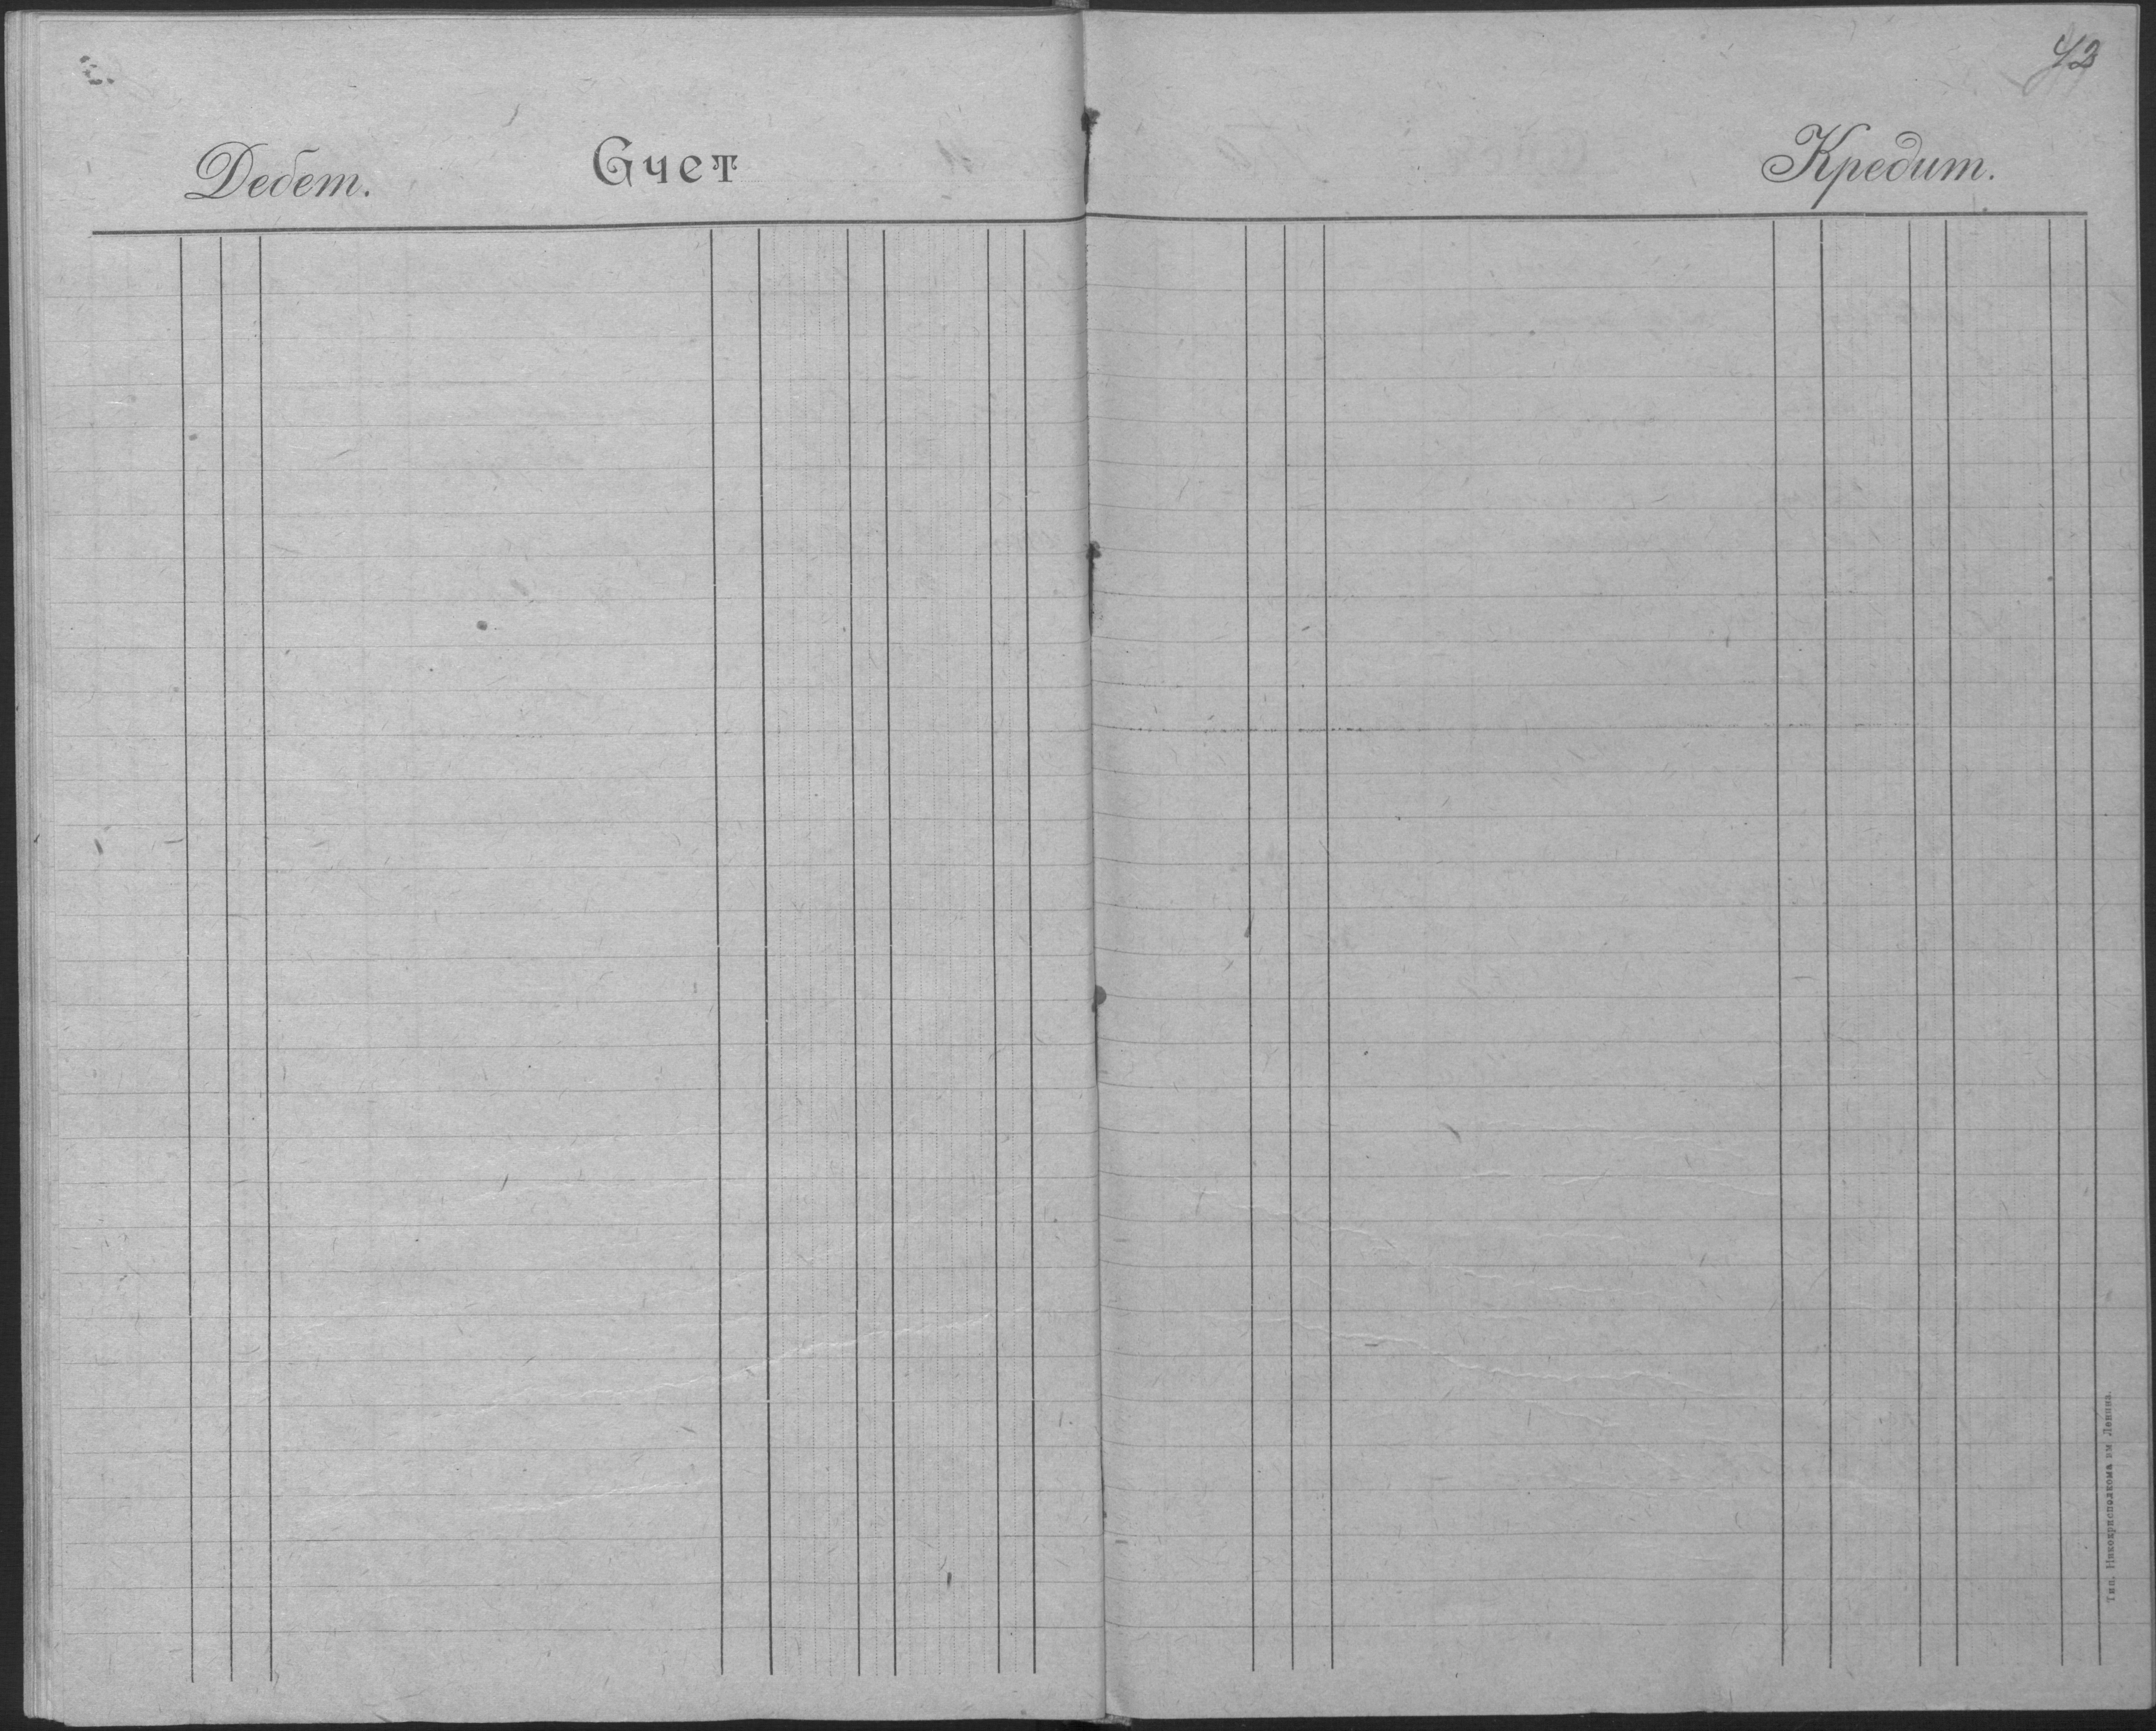 42
Дебет. Счет Кредит.
Тип. Никокрисполкома им Ленина.